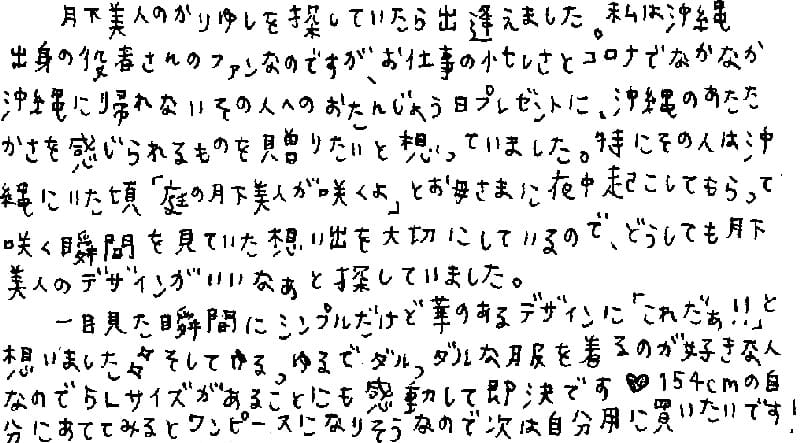 月下美人のかりゆしを探していたら出逢えました。私は沖縄
出身の役者さんのファンなのですが、お仕事の忙しさとコロナでなかなか
沖縄に帰れないその人へのおたんじょう日プレゼントに、沖縄のあたた
かさを感じられるものを贈りたいと想っていました。特にその人は沖
縄にいた頃「庭の月下美人が咲くよ」とお母さまに夜中起こしてもらって
咲く瞬間を見ていた想い出を大切にしているので、どうしても月下
美人のデザインがいいなぁと探していました。
一目見た瞬間にシンプルだけど華のあるデザインに「これだぁ!!」と
想いました☆☆そしてゆるっゆるでダルッダルな服を着るのが好きな人
なので5Lサイズがあることにも感動して即決です♡154cmの自
分にあててみるとワンピースになりそうなので次は自分用に買いたいです!